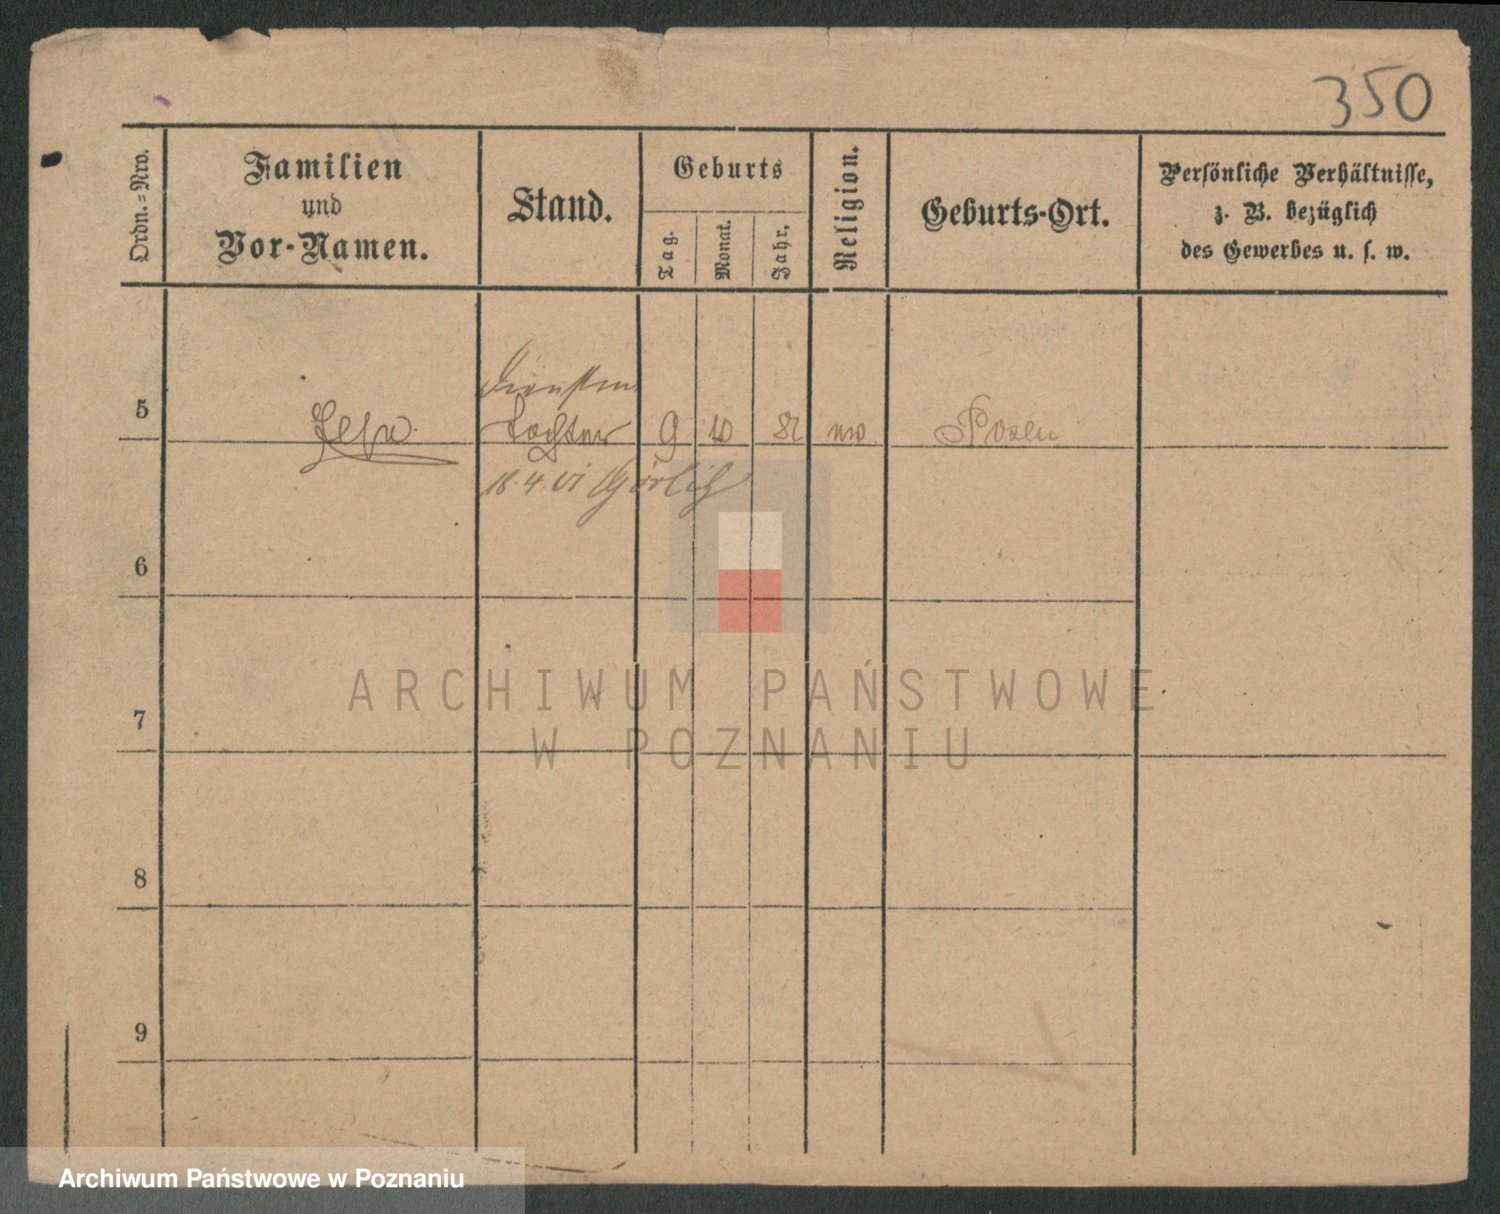 350
Ordn.-Nro.
Familien
und
Vor-Namen.
Stand.
Geburts
Tag.
Monat.
Jahr.
Religion.
Geburts-Ort.
Persönliche Verhältnisse,
z. B. bezüglich
des Gewerbes u. s. w.
5
Tochter 9 10 82 Posen
18.4.01 Görlitz
6
7
8
9
ARCHIWUM PAŃSTWOWE
W POZNANIU
Archiwum Państwowe w Poznaniu